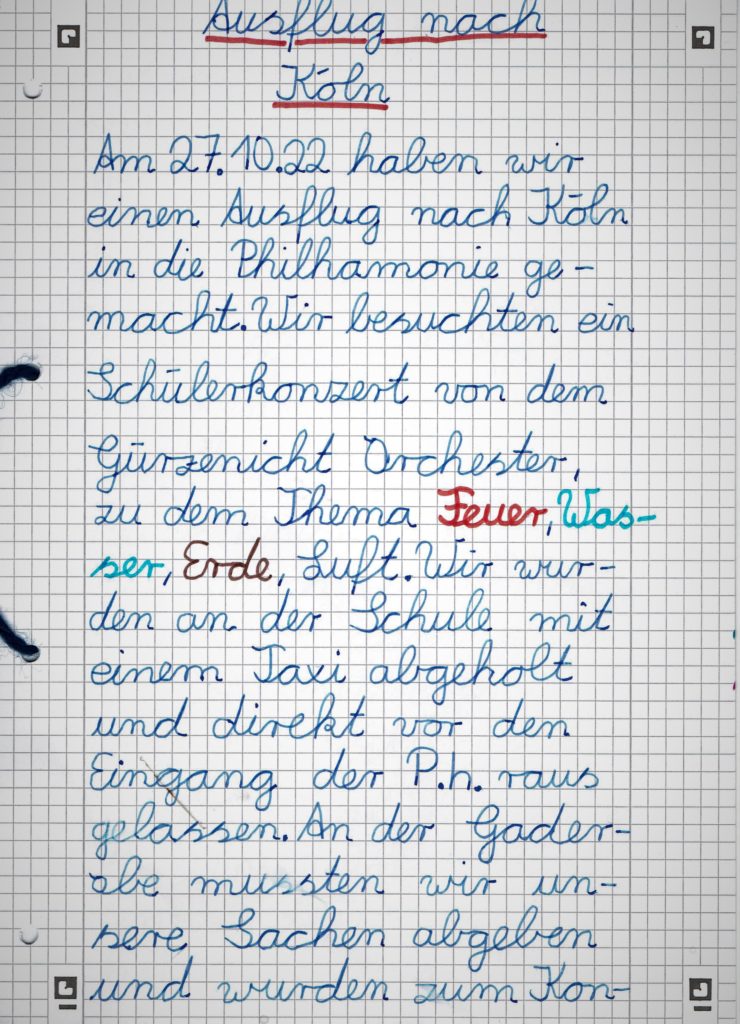 Ausflug nach
Köln
Am 27.10.22 haben wir
einen Ausflug nach Köln
in die Philhamonie ge-
macht. Wir besuchten ein
Schülerkonzert von dem
Gürzenicht Orchester,
zu dem Thema Feuer, Was-
ser, Erde, Luft. Wir wur-
den an der Schule mit
einem Taxi abgeholt
und direkt vor den
Eingang der P.h. raus
gelassen. An der Gader-
obe mussten wir un-
sere Sachen abgeben
und wurden zum Kon-